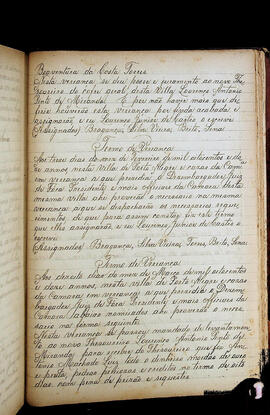 Boaventura da Costa Torres
Nesta vereança se deu posse e juramento ao novo The
zoureiro do cofre geral desta Villa Lourenço Antonio
Pinto de Miranda. E por não haver mais que de
ferir houverão esta vereança por finda acabada e
assignarão, e eu Lourenço Junior de Castro o escrevi
(Assignados) Bragança, Silva Vieira, Brito, Sena
Termo de Vereança
Aos tres dias do mez de Fevereiro de mil oitocentos e
annos nesta Villa de Porto Alegre e casas da Cam
em vereança a que presidia o Dezembargador Juiz
de Fora Presidente e mais officiaes da Camara desta
mesma Villa ahi proverão o necessario na mesma
vereança aqui se despacharão os necessarios reque
rimentos de que para assim constar fiz este termo
que elles assignarão e eu Lourenço Junior de Castro o
escrevi
Assignados) Bragança, Silva Vieira, Torres, Brito, Sena
Termo de Vereança
Aos dezoito dias do mez de Março de mil oitocentos
e dez annos, nesta villa de Porto Alegre e casas
da Camara em vereança a que presidia o Dezem
bargador Juiz de Fora Presidente e mais officiaes da
Camara abaixo nomeados ahi proverão o neces
sario na forma seguinte
Nesta vereança se passou mandado de levantamen
to ao novo Thezoureiro Lourenço Antonio Pinto de
Miranda para receber do Thezoureiro que foi An
tonio Machado todo o dinheiro moedas de ouro
e prata, pedras preciosas e creditos no termo de oito
dias com pena de prizão e sequestro